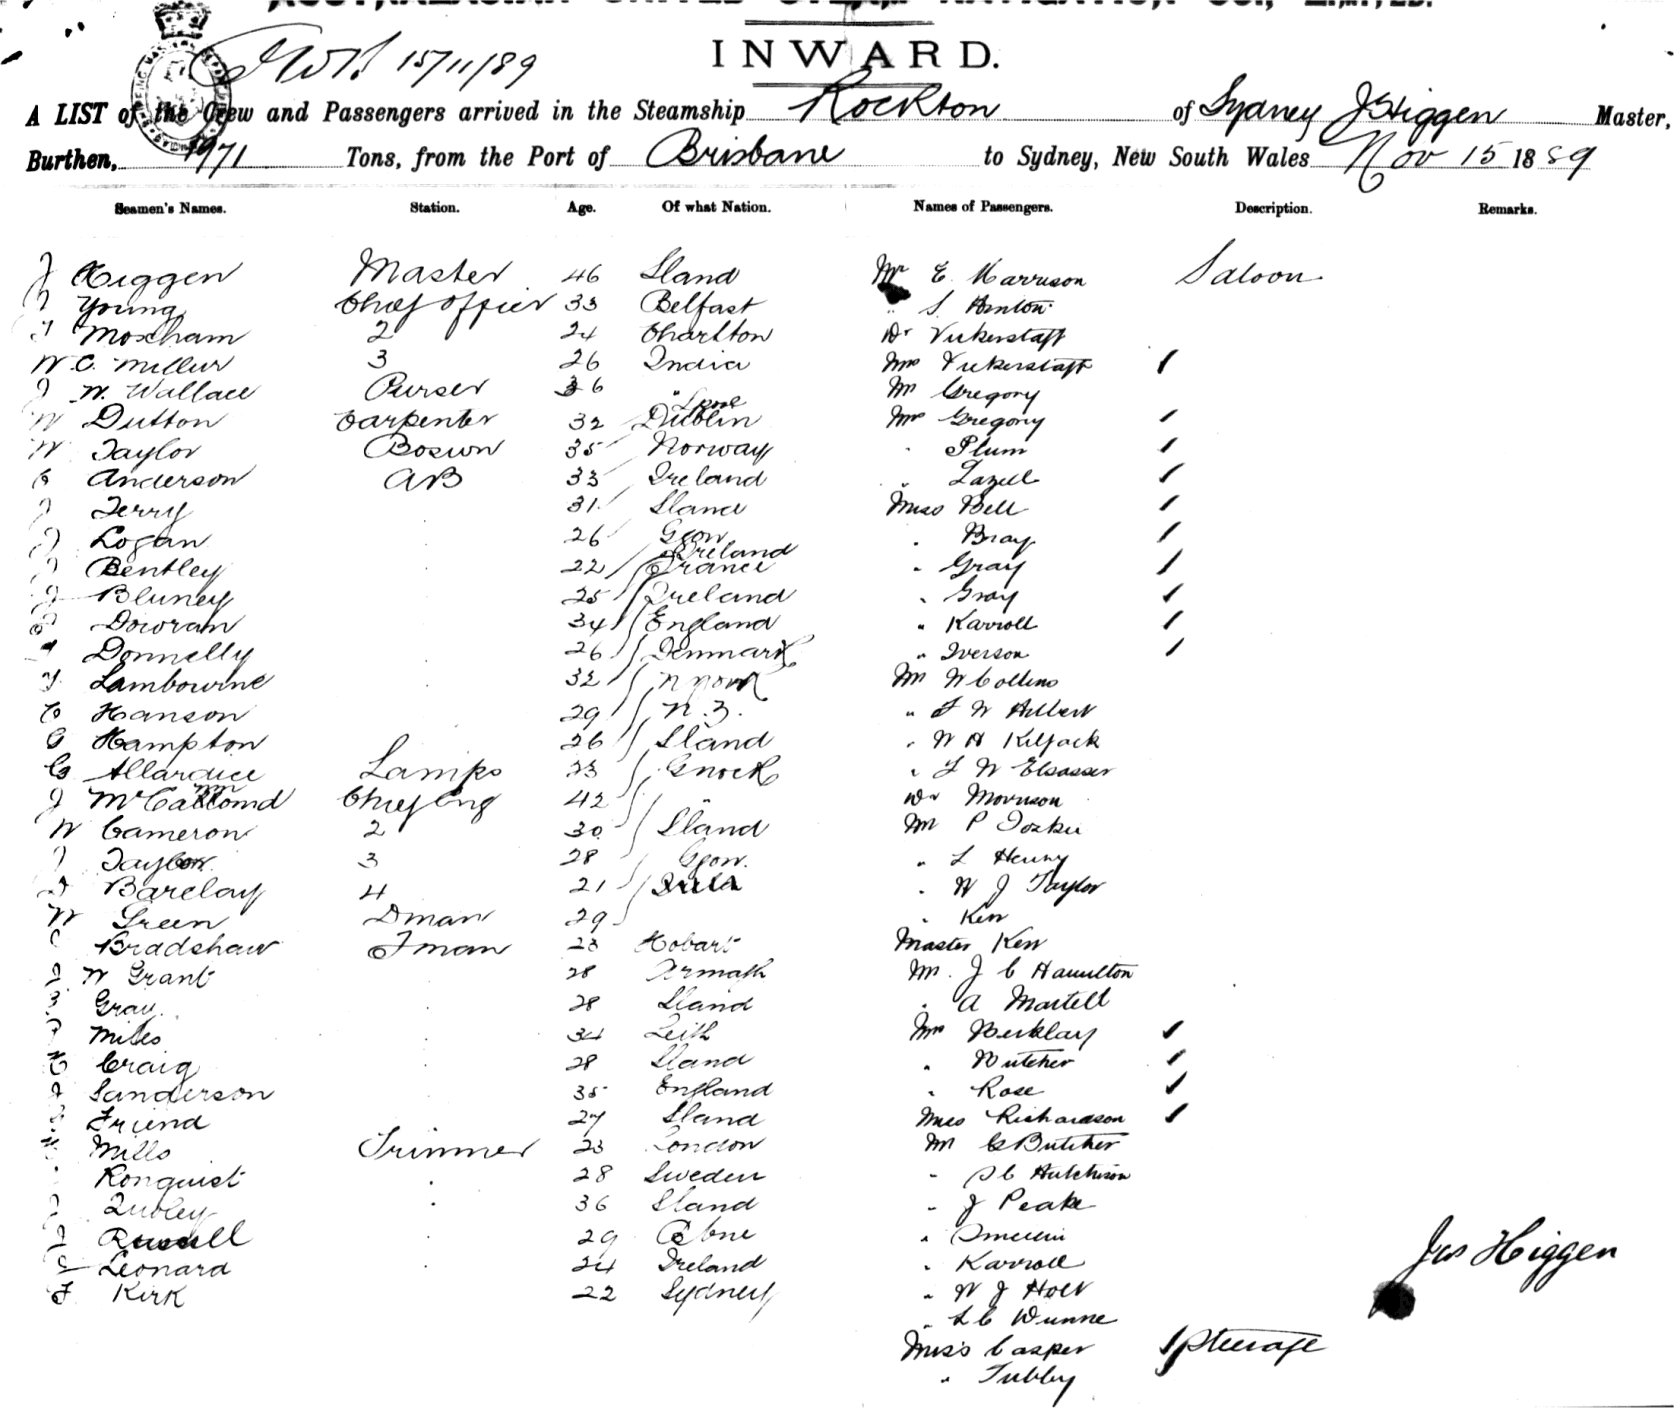 AUSTRALASIAN UNITED STEAM NAVIGATION CO., LIMITED.
INWARD.
15/11/89
A LIST of the Crew and Passengers arrived in the Steamship Rockton of Sydney J Higgen Master,
Burthen, 1971 Tons, from the Port of Brisbane to Sydney, New South Wales Nov 15 1889
Seamen's Names. Station. Age. Of what Nation. Names of Passengers. Description. Remarks.
J Higgen Master 46 Sland Mr E. Harrison Saloon
J Young Chief Officer 33 Belfast " S. Hinton
Moxham 2 24 Charlton Dr Vickerstaff
W.C. Miller 3 26 India Mrs Vickerstaff 1
J W. Wallace Purser 36 " Mr Gregory
Lpool
W Dutton Carpenter 32 Dublin Mrs Gregory 1
W Taylor Boswn 35 Norway " Plum 1
Anderson AB 33 Ireland " Lazell 1
J Terry 31 Sland Miss Bell 1
J Logan 26 Gow " Bray 1
Ireland
J Bentley 22 France " Gray 1
J Bluney 25 Ireland " Gray 1
Dowram 34 England " Karroll 1
Donnelly 26 Denmark " Iverson 1
Lambourne 32 N York Mr W Collins
C Hanson 29 N.Z. " F W Hilbert
G Hampton 26 Sland " W H Kilfack
G Allardice Lamps 23 Gnock " L W Elsasser
J McCallomd Chief Eng 42 " Dr Morrison
W Cameron 2 30 Sland Mr P
J Taylor 3 28 Ggow. " L Henry
D Barclay 4 21 " W J Taylor
W Green Dman 29 " Kerr
Bradshaw Fman 23 Hobart Master Kerr
J W Grant 28 Armagh Mr. J C Hamilton
Gray. 28 Sland " A Martell
Miles 34 Leith Mrs Berklay 1
Craig 28 Sland " Butcher 1
Sanderson 35 England " Rose 1
Friend 27 Sland Miss Richardson 1
Mills Trimmer 23 London Mr G Butcher
Ronquist 28 Sweden " Hutchison
36 Sland " J Peake
J Russell 29 "
Leonard 24 Ireland " Karroll
Jas Higgen
F Kirk 22 Sydney " W J Holt
" L C Dunne
Miss Casper 1 Steerage
" Tubby